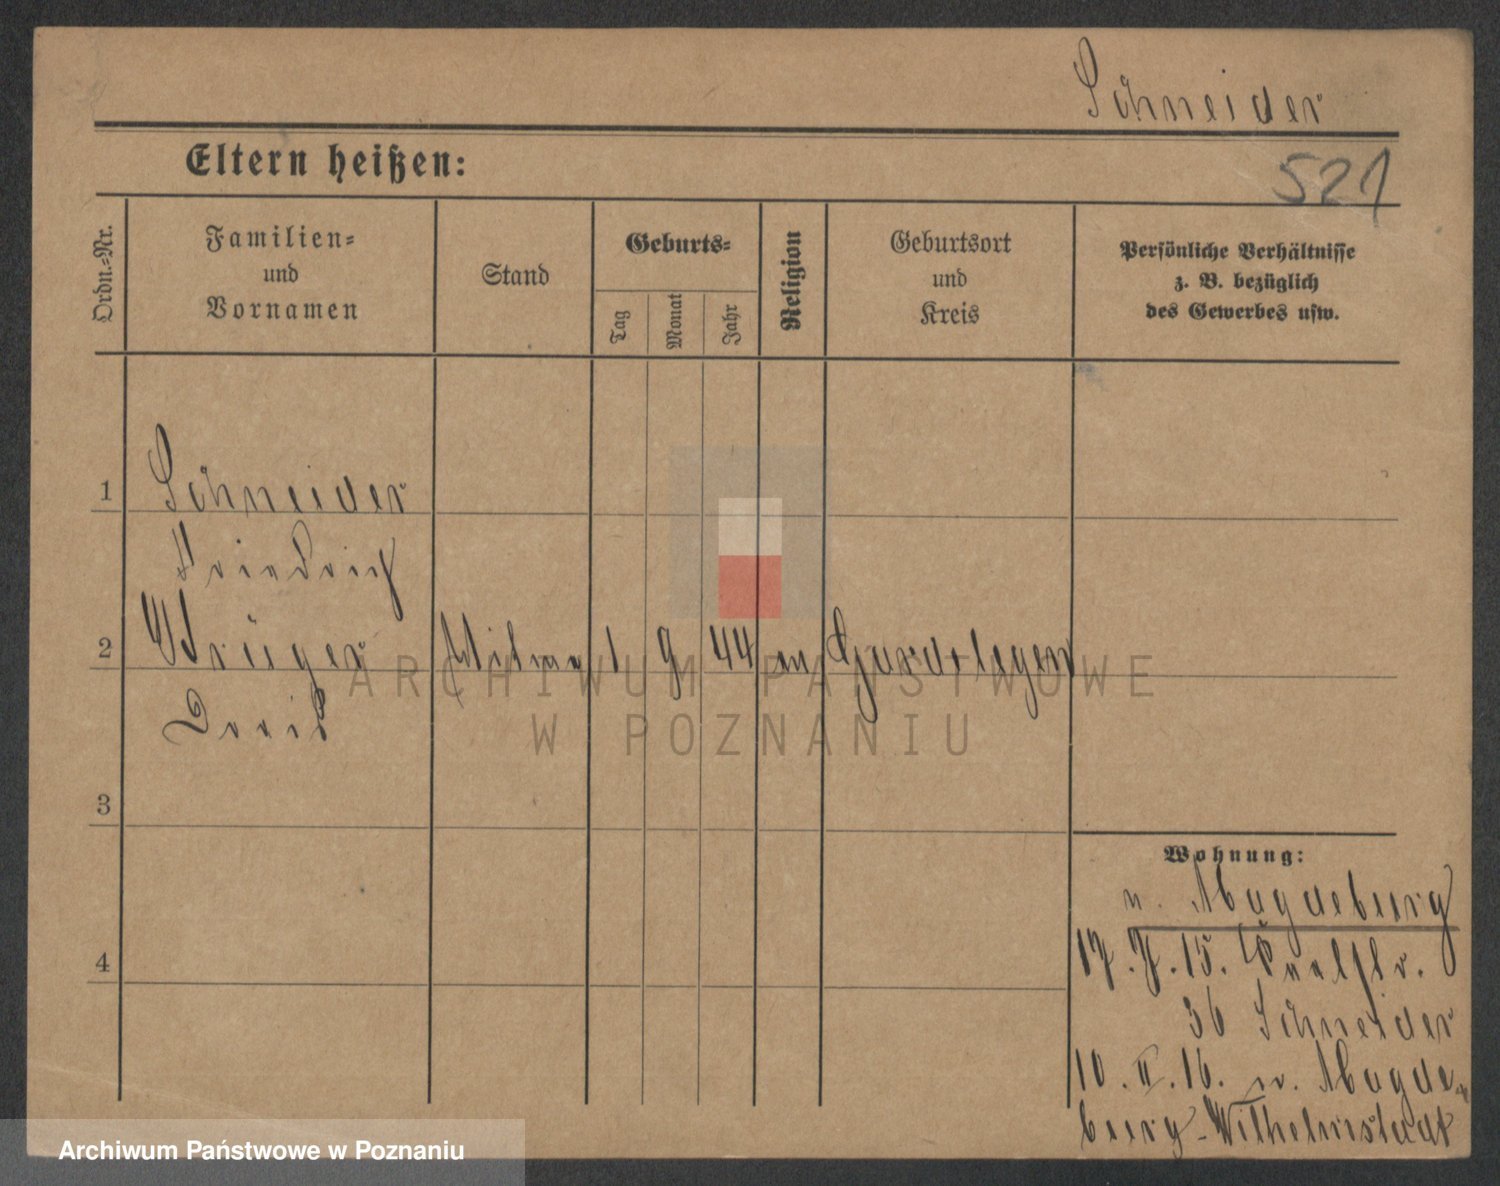 Schneider
Eltern heißen:
521
Ordn.-Nr.
Familien-
und
Vornamen
Stand
Geburts-
Tag
Monat
Jahr
Religion
Geburtsort
und
Kreis
Persönliche Verhältnisse
z. B. bezüglich
des Gewerbes usw.
1 Schneider
Friedrich
2 Krüger Witwe 1 9 44 ev Gardelegen
Doris
3
4
Wohnung:
n. Magdeburg
17. 7. 15.
36 Schneider
10. II. 16. n. Magde-
burg-Wilhelmstadt
ARCHIWUM PAŃSTWOWE
W POZNANIU
Archiwum Państwowe w Poznaniu